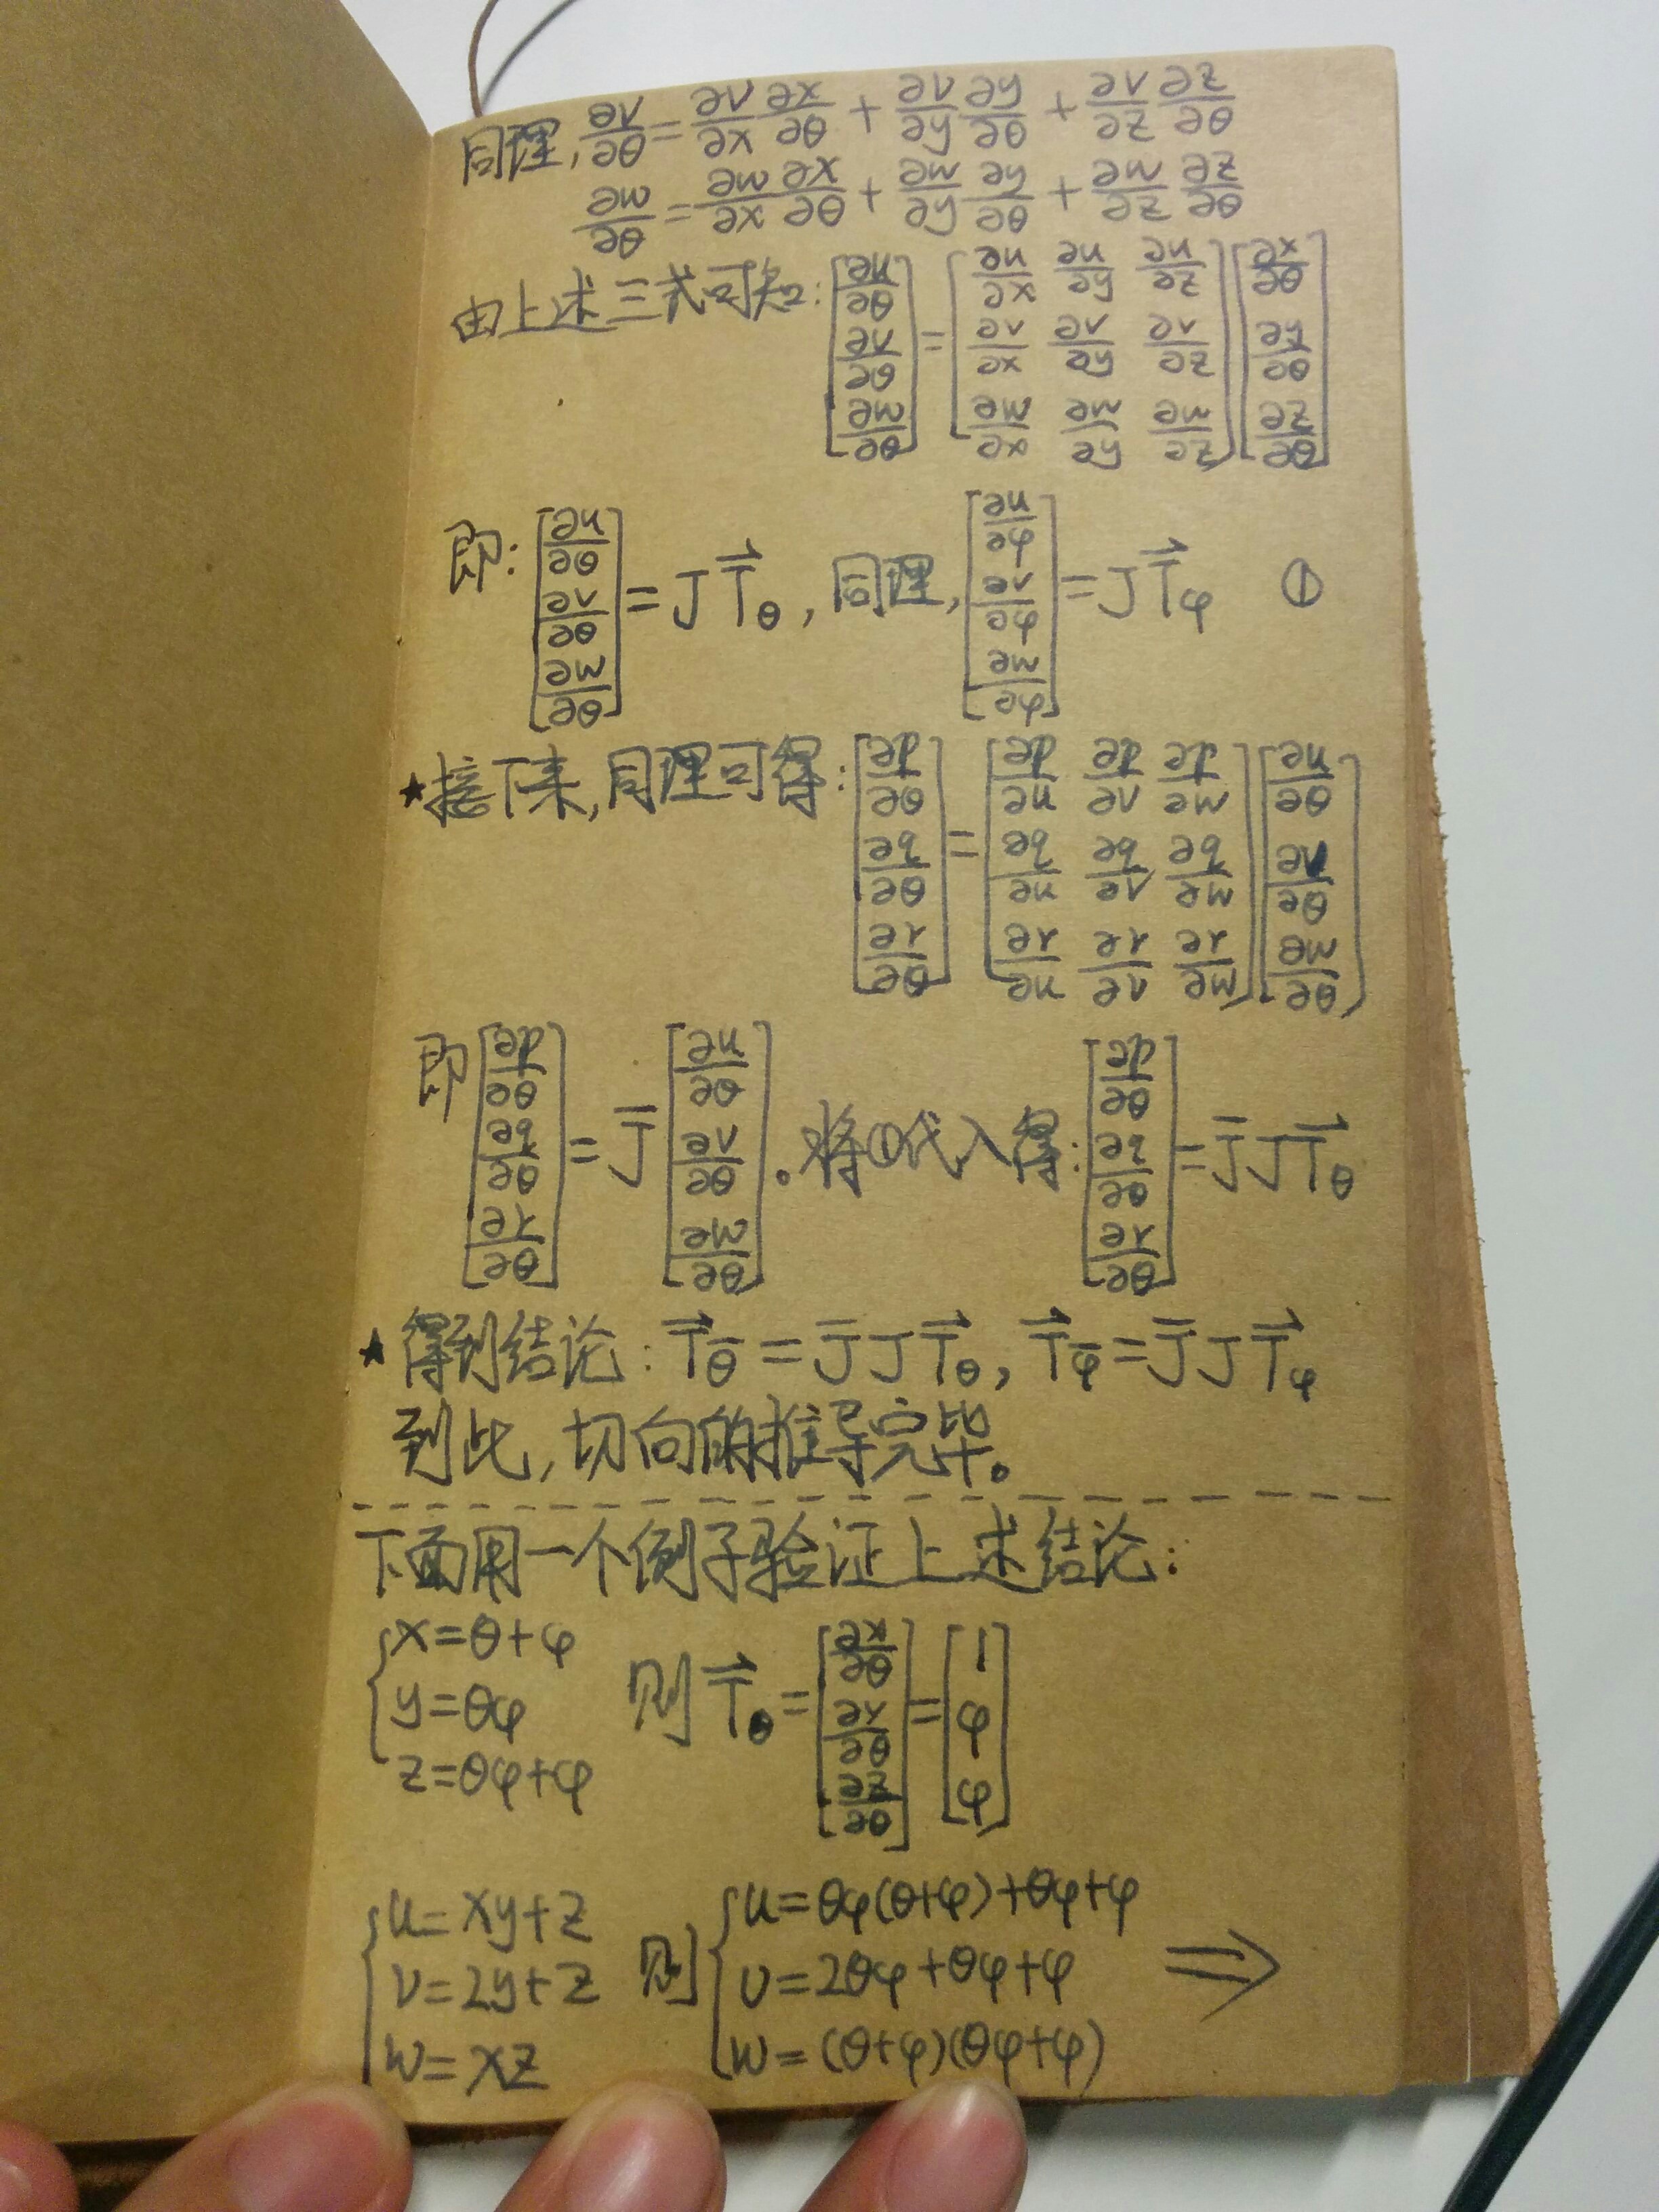 同理, ∂v/∂θ = ∂v/∂x ∂x/∂θ + ∂v/∂y ∂y/∂θ + ∂v/∂z ∂z/∂θ
∂w/∂θ = ∂w/∂x ∂x/∂θ + ∂w/∂y ∂y/∂θ + ∂w/∂z ∂z/∂θ
由上述三式可知: [∂u/∂θ; ∂v/∂θ; ∂w/∂θ] = [∂u/∂x ∂u/∂y ∂u/∂z; ∂v/∂x ∂v/∂y ∂v/∂z; ∂w/∂x ∂w/∂y ∂w/∂z] [∂x/∂θ; ∂y/∂θ; ∂z/∂θ]
即: [∂u/∂θ; ∂v/∂θ; ∂w/∂θ] = J T⃗θ, 同理, [∂u/∂φ; ∂v/∂φ; ∂w/∂φ] = J T⃗φ ①
★接下来, 同理可得: [∂p/∂θ; ∂q/∂θ; ∂r/∂θ] = [∂p/∂u ∂p/∂v ∂p/∂w; ∂q/∂u ∂q/∂v ∂q/∂w; ∂r/∂u ∂r/∂v ∂r/∂w] [∂u/∂θ; ∂v/∂θ; ∂w/∂θ]
即 [∂p/∂θ; ∂q/∂θ; ∂r/∂θ] = J̄ [∂u/∂θ; ∂v/∂θ; ∂w/∂θ]。将①代入得: [∂p/∂θ; ∂q/∂θ; ∂r/∂θ] = J̄ J T⃗θ
★得到结论: T⃗θ̄ = J̄ J T⃗θ, T⃗φ̄ = J̄ J T⃗φ
到此, 切向的推导完毕。
下面用一个例子验证上述结论:
{x=θ+φ
y=θφ
z=θφ+φ
则 T⃗θ = [∂x/∂θ; ∂y/∂θ; ∂z/∂θ] = [1; φ; φ]
{u=xy+z
v=2y+z
w=xz
则 {u=θφ(θ+φ)+θφ+φ
v=2θφ+θφ+φ
w=(θ+φ)(θφ+φ)
⇒